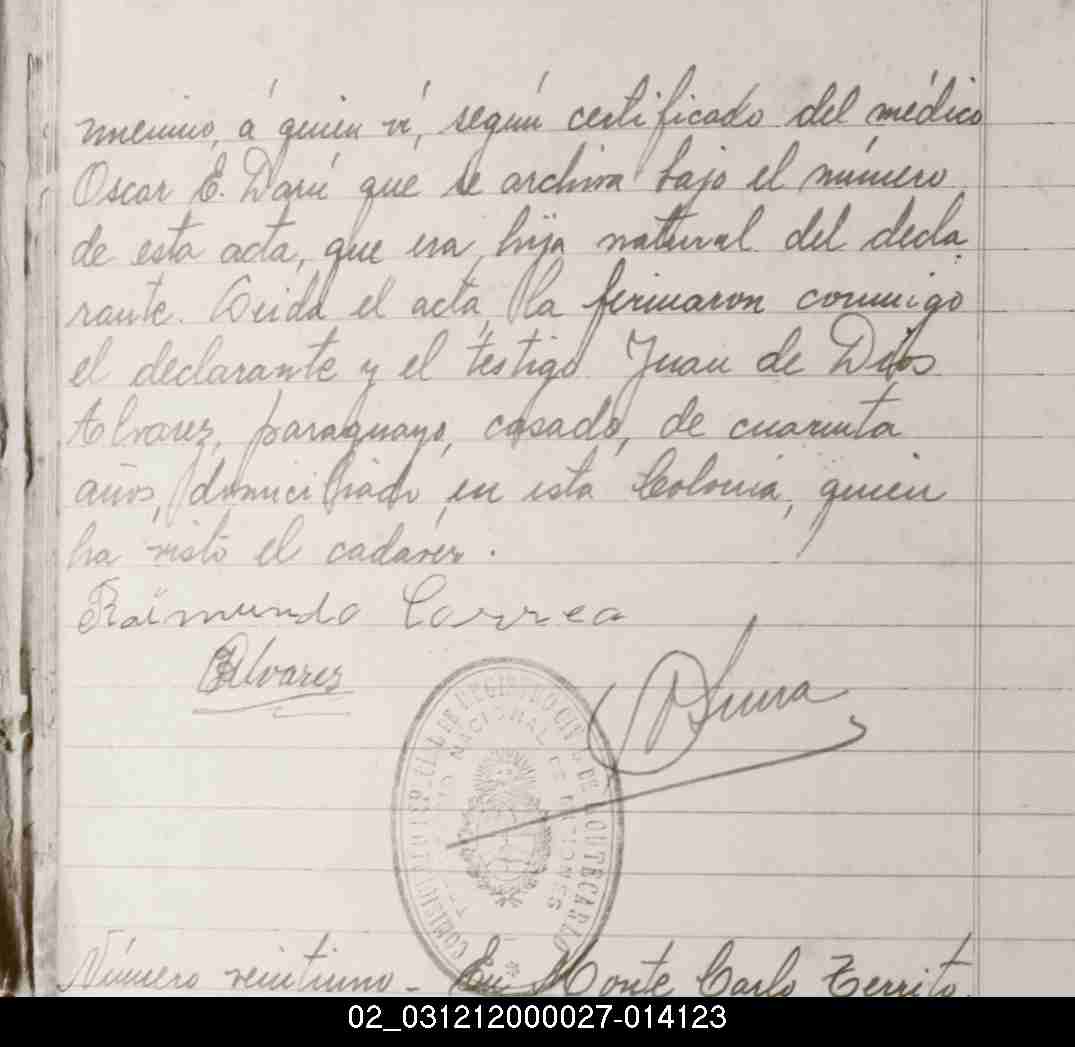 menino, á quien ví, según certificado del médico
Oscar E. Darú que se archiva bajo el número
de esta acta, que era hija natural del decla
rante. Leida el acta, la firmaron conmigo
el declarante y el testigo Juan de Dios
Alvarez, paraguayo, casado, de cuarenta
años, domiciliado en esta Colonia, quien
ha visto el cadáver.
Raimundo Correa
Alvarez
REGISTRO CIVIL DE MONTECARLO
NACIONAL DE MISIONES
Número veintiuno - En Monte Carlo Territo
02_031212000027-014123